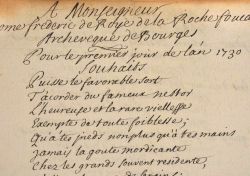 A Monseigneur
ome frederic de Roye de la Rochefouca
Archeveque de Bourges
Pour le premier jour de l'an 1730
Souhaits
Puisse le favorable sort
T'acorder du fameux nestor
L'heureuse et la rare viellesse
Exempte de toute foiblesse;
Qu'a tes pieds non plus qu'a tes mains
Jamais la goute mordicante
Chez les grands souvent residente,